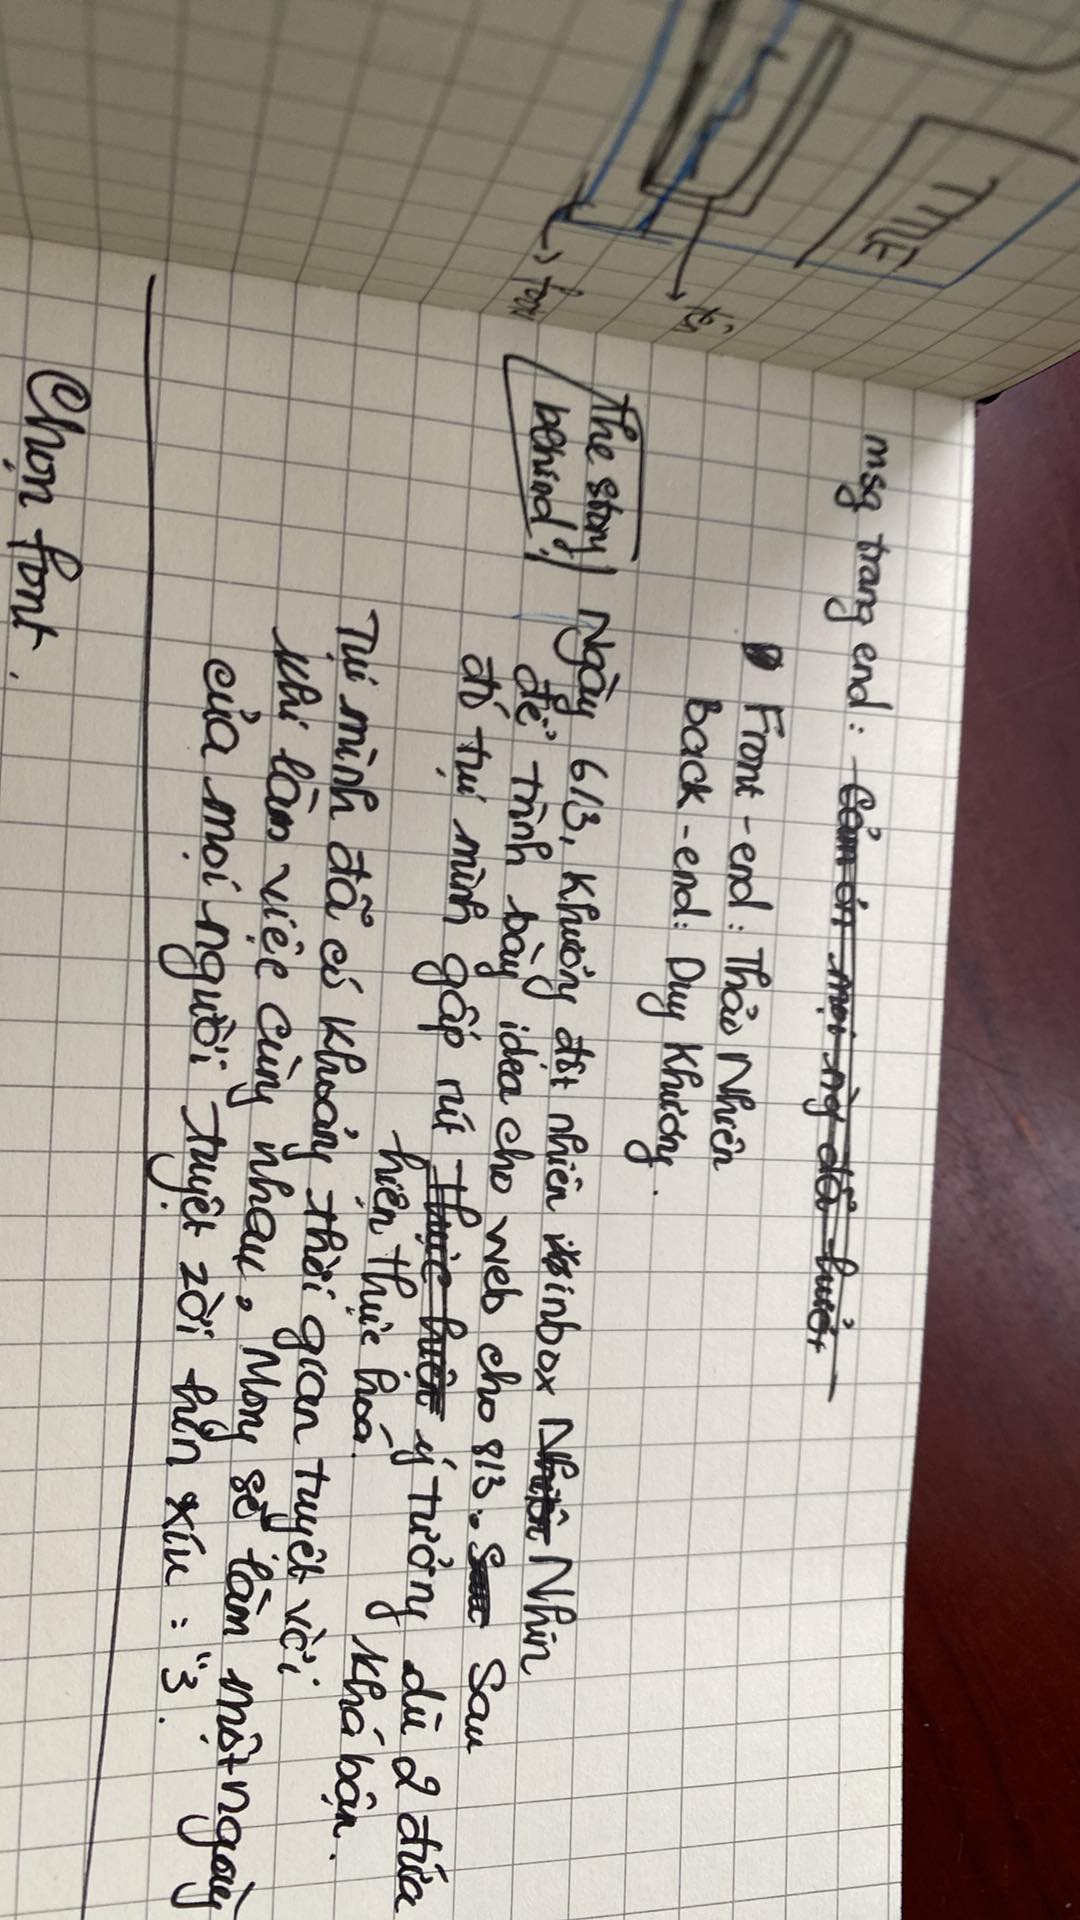 TME
tên
msg trang end: Cảm ơn mọi ng đã lướt
Front-end: Thảo Nhiên
Back-end: Duy Khương.
The story
behind:
Ngày 6/3, Khương đột nhiên inbox Nhiên Nhin
để trình bày idea cho web cho 8/3. Sau Sau
đó tụi mình gấp rút thực luôn ý tưởng dù 2 đứa
hiện thực hoá. khá bận.
Tụi mình đã có khoảng thời gian tuyệt vời
khi làm việc cùng nhau. Mong sẽ làm một ngày
của mọi người tuyệt zời hơn xíu :"3.
Chọn font.